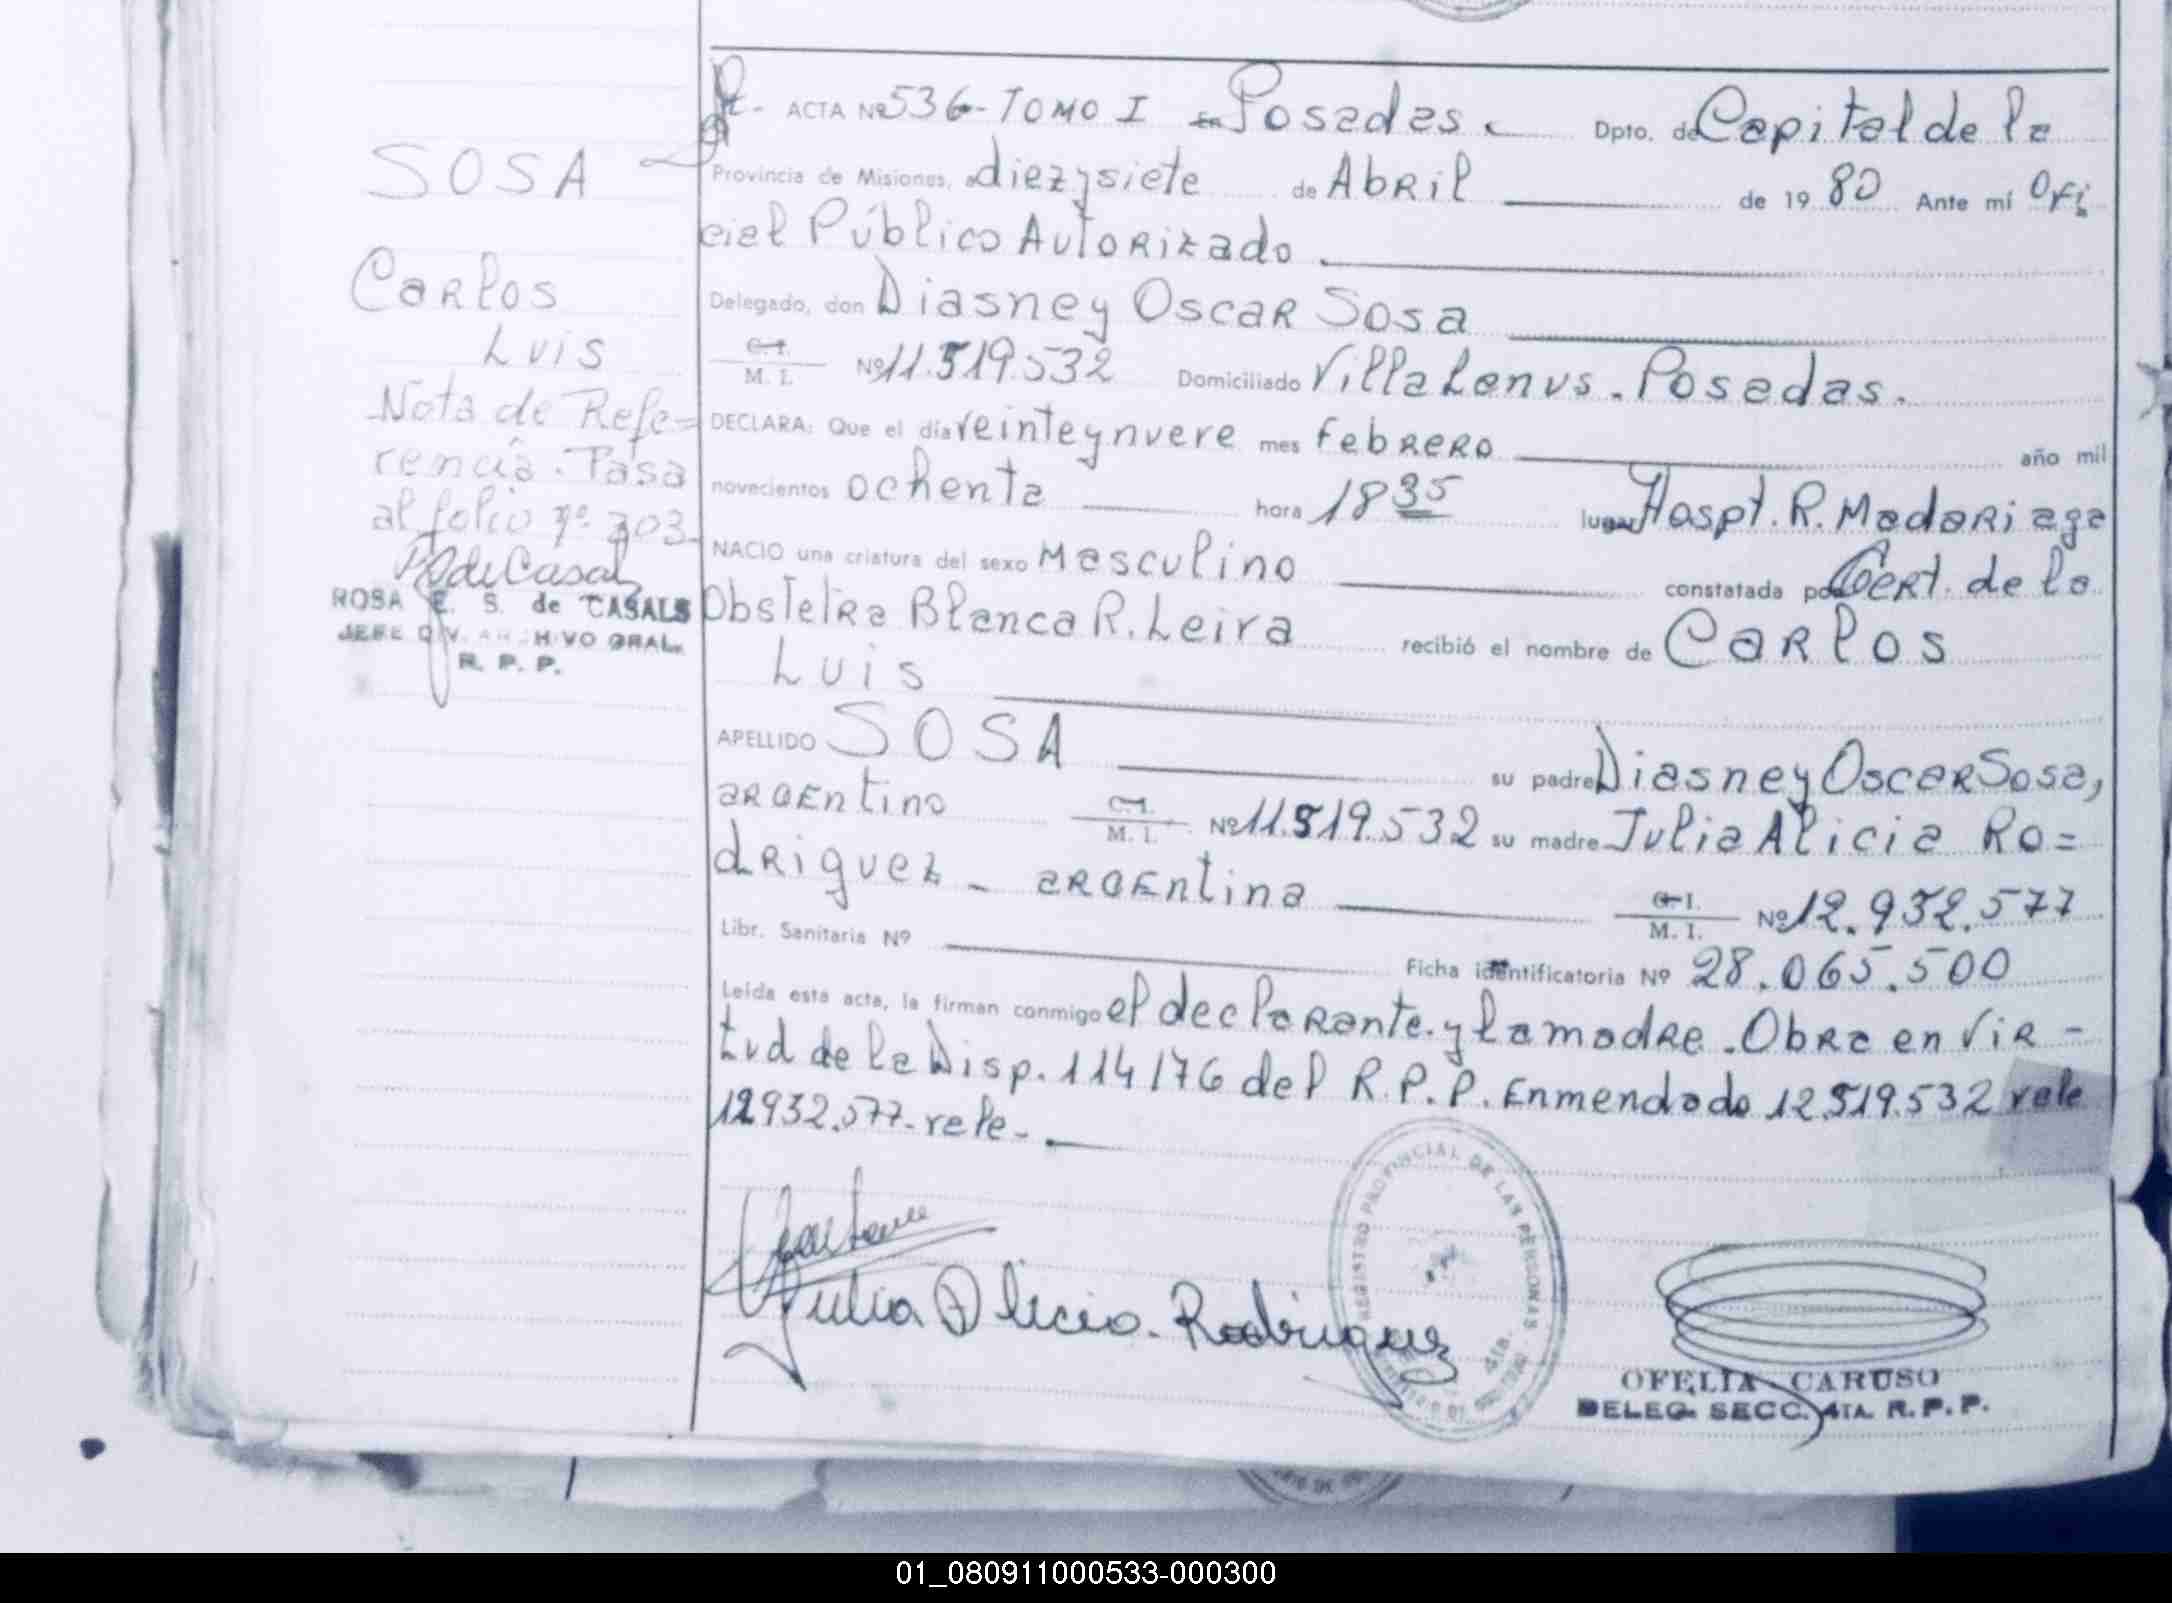 SOSA
Carlos
Luis
Nota de Refe=
rencia. Pasa
al folio nº 303.
ROSA E. S. de CASALS
JEFE DIV. ARCHIVO GRAL.
R. P. P.
ACTA Nº 536-TOMO I En Posadas. Dpto. de Capital de la
Provincia de Misiones, a diez y siete de Abril de 1980 Ante mí Ofi
cial Público Autorizado.
Delegado, don Diasney Oscar Sosa
C. I.
M. I. Nº 11.519.532 Domiciliado Villa Lanus. Posadas.
DECLARA: Que el día veinte y nueve mes Febrero año mil
novecientos ochenta hora 18 35 lugar Hospt. R. Madariaga
NACIO una criatura del sexo Masculino constatada por Cert. de la
Obstetra Blanca R. Leira recibió el nombre de Carlos
Luis
APELLIDO SOSA su padre Diasney Oscar Sosa,
argentino C. I.
M. I. Nº 11.519.532 su madre Julia Alicia Ro=
driguez - argentina C. I.
M. I. Nº 12.932.577
Libr. Sanitaria Nº Ficha identificatoria Nº 28.065.500
Leída esta acta, la firman conmigo el declarante. y la madre. Obra en Vir -
tud de la Disp. 114/76 del R.P.P. Enmendado 12.519.532 vale
12932.577-vale-
Julia Alicia. Rodriguez
REGISTRO PROVINCIAL DE LAS PERSONAS
4ta.
OFELIA CARUSO
DELEG. SECC. 4TA. R.P.P.
01_080911000533-000300